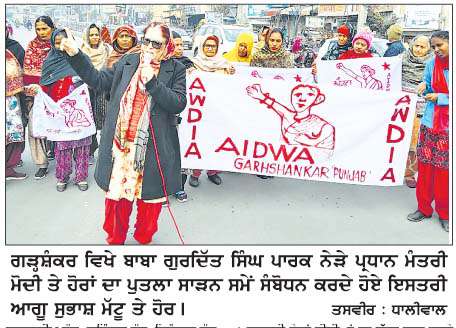 AWDIA
AIDWA
GARHSHANKAR PUNJAB
AWDIA
ਗੜ੍ਹਸ਼ੰਕਰ ਵਿਖੇ ਬਾਬਾ ਗੁਰਦਿੱਤ ਸਿੰਘ ਪਾਰਕ ਨੇੜੇ ਪ੍ਰਧਾਨ ਮੰਤਰੀ
ਮੋਦੀ ਤੇ ਹੋਰਾਂ ਦਾ ਪੁਤਲਾ ਸਾੜਨ ਸਮੇਂ ਸੰਬੋਧਨ ਕਰਦੇ ਹੋਏ ਇਸਤਰੀ
ਆਗੂ ਸੁਭਾਸ਼ ਮੱਟੂ ਤੇ ਹੋਰ।
ਤਸਵੀਰ : ਧਾਲੀਵਾਲ